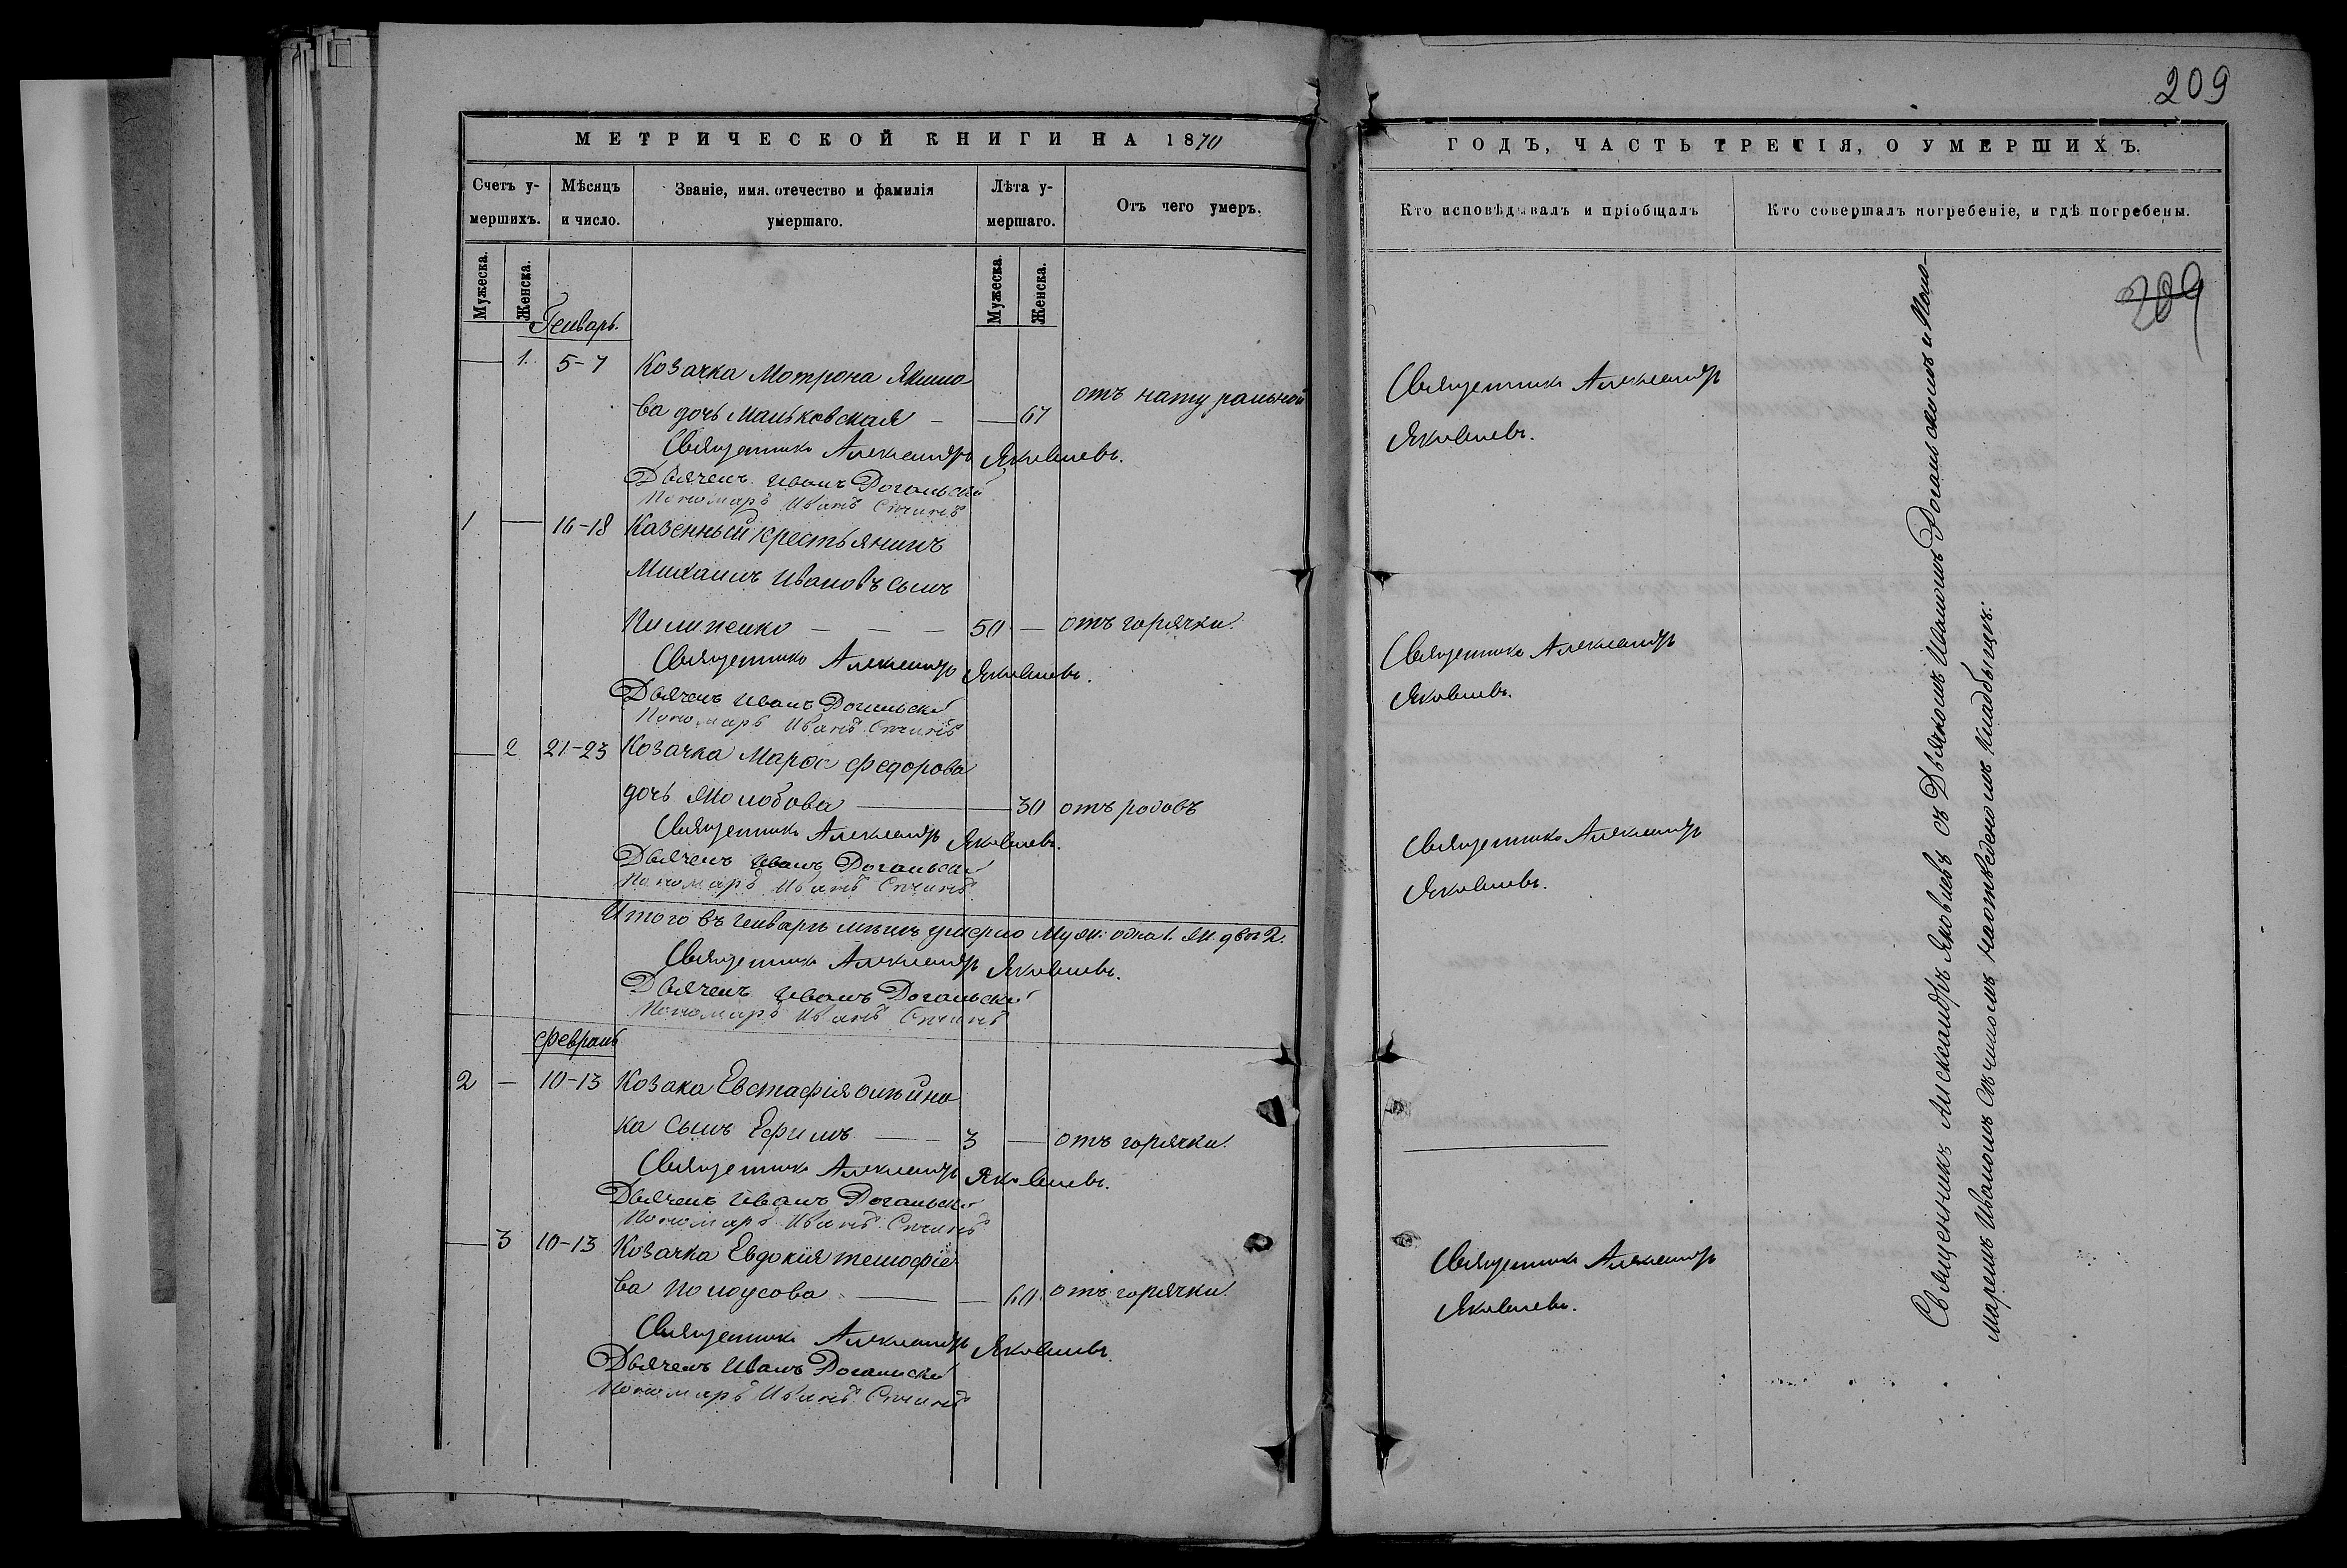 МЕТРИЧЕСКОЙ КНИГИ НА 1870
Счетъ у-
мершихъ.
Мѣсяцъ
и число.
Званіе, имя, отечество и фамилія
умершаго.
Лѣта у-
мершаго.
Отъ чего умеръ.
Мужеска.
Женска.
Мужеска.
Женска.
Генварь.
1. 5-7 Козачка Мотрона Якимо
ва дочь Маньковская — — 67 отъ натуральной
Священникъ Александръ Яковлевъ.
Дьячекъ Иванъ Рогальскій
Пономарь Иванъ
1 — 16-18 Казенный крестьянинъ
Михаилъ Ивановъ сынъ
Пилипенко — — — 50 — отъ горячки.
Священникъ Александръ Яковлевъ.
Дьячекъ Иванъ Рогальскій
Пономарь Иванъ
— 2 21-23 Козачка Марфа Федорова
дочь — — 30 отъ родовъ
Священникъ Александръ Яковлевъ.
Дьячекъ Иванъ Рогальскій
Пономарь Иванъ
Итого въ Генварѣ мѣцѣ умерло муж: одна 1. Ж. двѣ 2.
Священникъ Александръ Яковлевъ.
Дьячекъ Иванъ Рогальскій
Пономарь Иванъ
Февраль
2 — 10-13 Козака Евстафія Олѣйни
ка сынъ Ефимъ — — 3 — отъ горячки.
Священникъ Александръ Яковлевъ.
Дьячекъ Иванъ Рогальскій
Пономарь Иванъ
— 3 10-13 Козачка Евдокія Тимофіе
ва — — 60 отъ горячки.
Священникъ Александръ Яковлевъ.
Дьячекъ Иванъ Рогальскій
Пономарь Иванъ
209
ГОДЪ, ЧАСТЬ ТРЕТІЯ, О УМЕРШИХЪ.
Кто исповѣдывалъ и пріобщалъ
Кто совершалъ погребеніе, и гдѣ погребены.
209
Священникъ Александръ
Яковлевъ.
Священникъ Александръ
Яковлевъ.
Священникъ Александръ
Яковлевъ.
Священникъ Александръ
Яковлевъ.
Священникъ Александръ Яковлевъ съ Дьячкомъ Иваномъ Рогальскимъ и Поно-
маремъ Иваномъ на отведеномъ кладбищѣ.